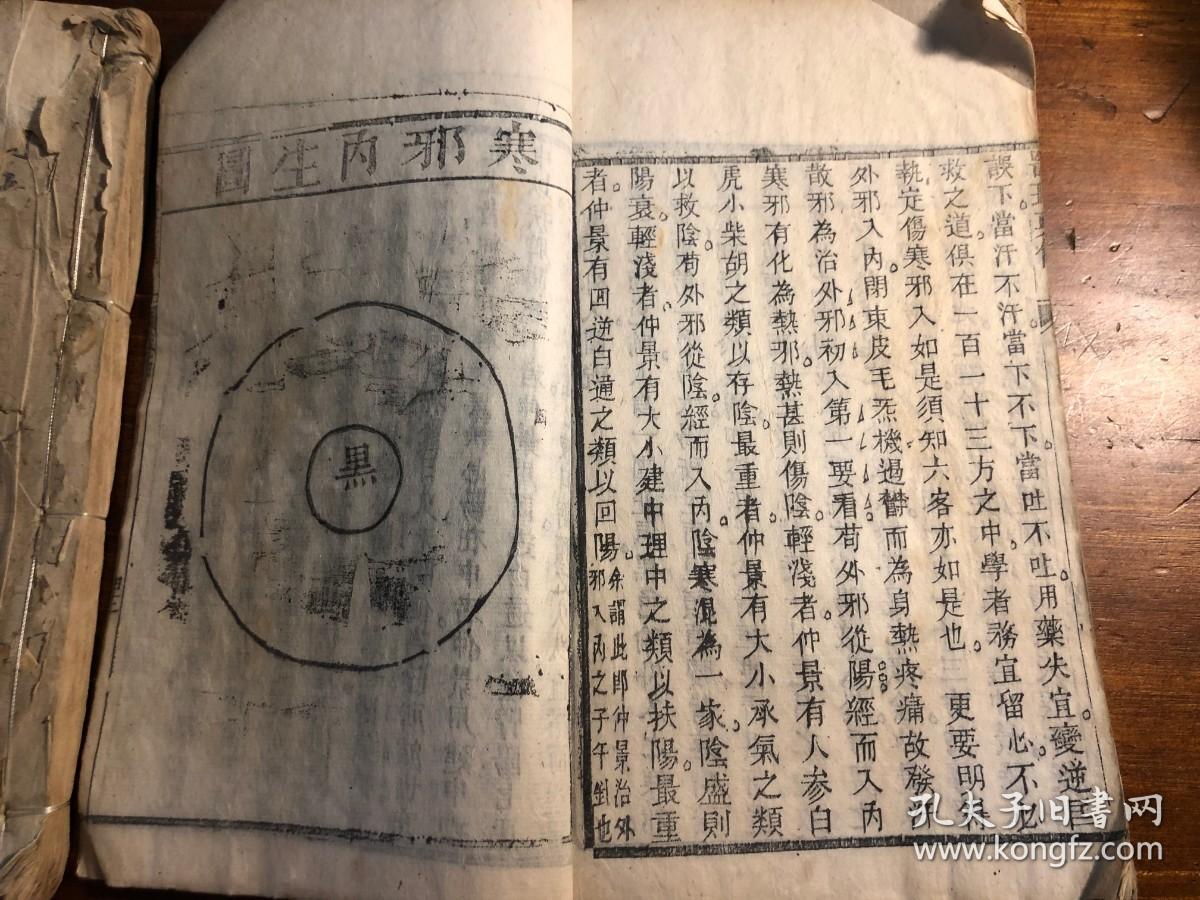 誤下當汗不汗當下不下當吐不吐用藥失宜變逆
救之道俱在一百一十三方之中學者務宜留心不必
執定傷寒邪入如是須知六客亦如是也 更要明得
外邪入內閉束皮毛炁機過鬱而為身熱疼痛故發
散邪為治外邪初入第一要看苟外邪從陽經而入內
寒邪有化為熱邪熱甚則傷陰輕淺者仲景有人參白
虎小柴胡之類以存陰最重者仲景有大小承氣之類
以救陰苟外邪從陰經而入內陰寒混為一家陰盛則
陽衰輕淺者仲景有大小建中理中之類以扶陽最重
者仲景有回逆白通之類以回陽余謂此即仲景治外
邪入內之子午針也
寒邪內生圖
黑
孔夫子旧書网
www.kongfz.com